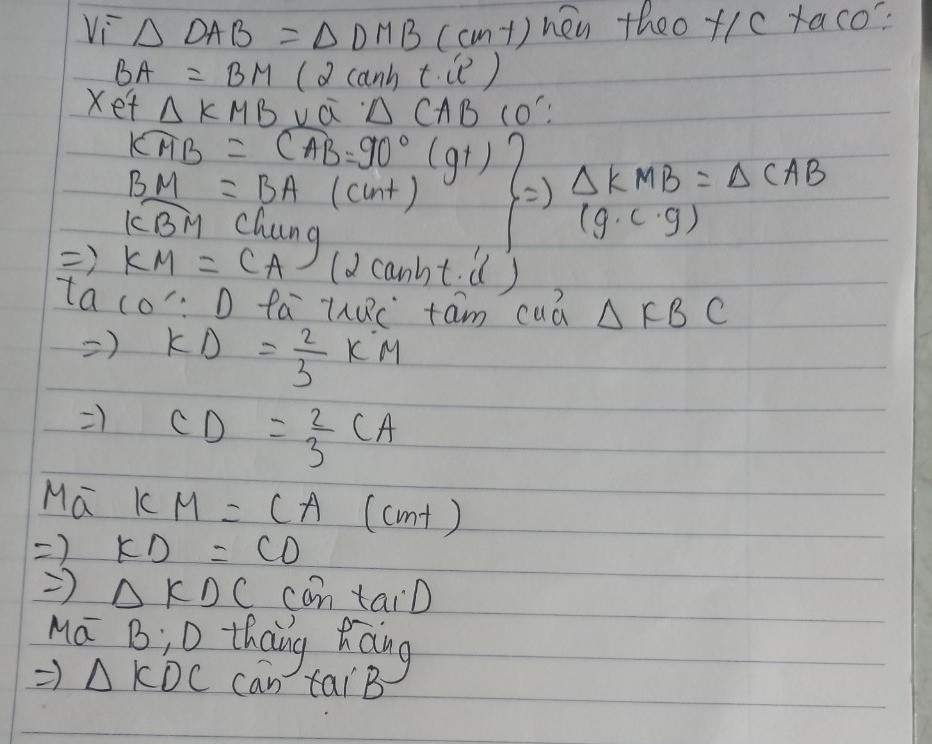 Vì Δ DAB = Δ DMB (cmt) nên theo t/c ta có:
BA = BM (2 cạnh t.ứ)
Xét Δ KMB và Δ CAB có:
KMB = CAB = 90° (gt)
BM = BA (cmt)
KBM chung
=> Δ KMB = Δ CAB
(g.c.g)
=> KM = CA (2 cạnh t.ứ)
Ta có: D là trực tâm của Δ KBC
=> KD = 2/3 KM
=> CD = 2/3 CA
Mà KM = CA (cmt)
=> KD = CD
=> Δ KDC cân tại D
Mà B; D thẳng hàng
=> Δ KDC cân tại B